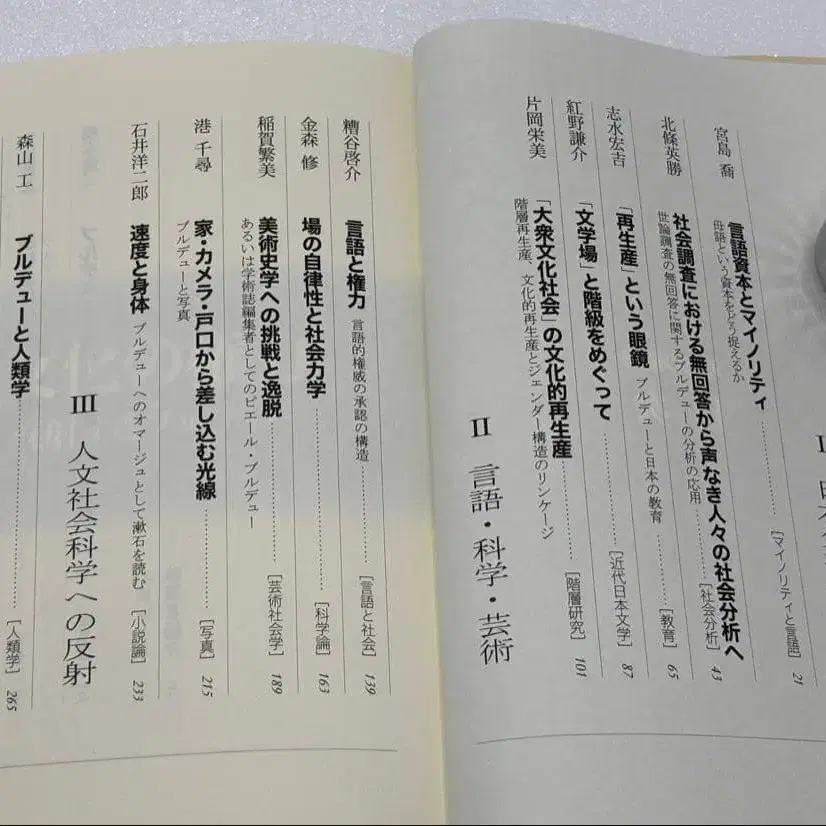 宮島 喬
言語資本とマイノリティ
母語という資本をどう捉えるか
[マイノリティと言語] 21
北條英勝
社会調査における無回答から声なき人々の社会分析へ
世論調査の無回答に関するブルデューの分析の応用
[社会分析] 43
志水宏吉
「再生産」という眼鏡 ブルデューと日本の教育
[教育] 65
紅野謙介
「文学場」と階級をめぐって
[近代日本文学] 87
片岡栄美
「大衆文化社会」の文化的再生産
階層再生産、文化的再生産とジェンダー構造のリンケージ
[階層研究] 101
II 言語・科学・芸術
糟谷啓介
言語と権力 言語的権威の承認の構造
[言語と社会] 139
金森 修
場の自律性と社会力学
[科学論] 163
稲賀繁美
美術史学への挑戦と逸脱
あるいは学術誌編集者としてのピエール・ブルデュー
[芸術社会学] 189
港 千尋
家・カメラ・戸口から差し込む光線
ブルデューと写真
[写真] 215
石井洋二郎
速度と身体 ブルデューへのオマージュとして漱石を読む
[小説論] 233
III 人文社会科学への反射
森山 工
ブルデューと人類学
[人類学] 265